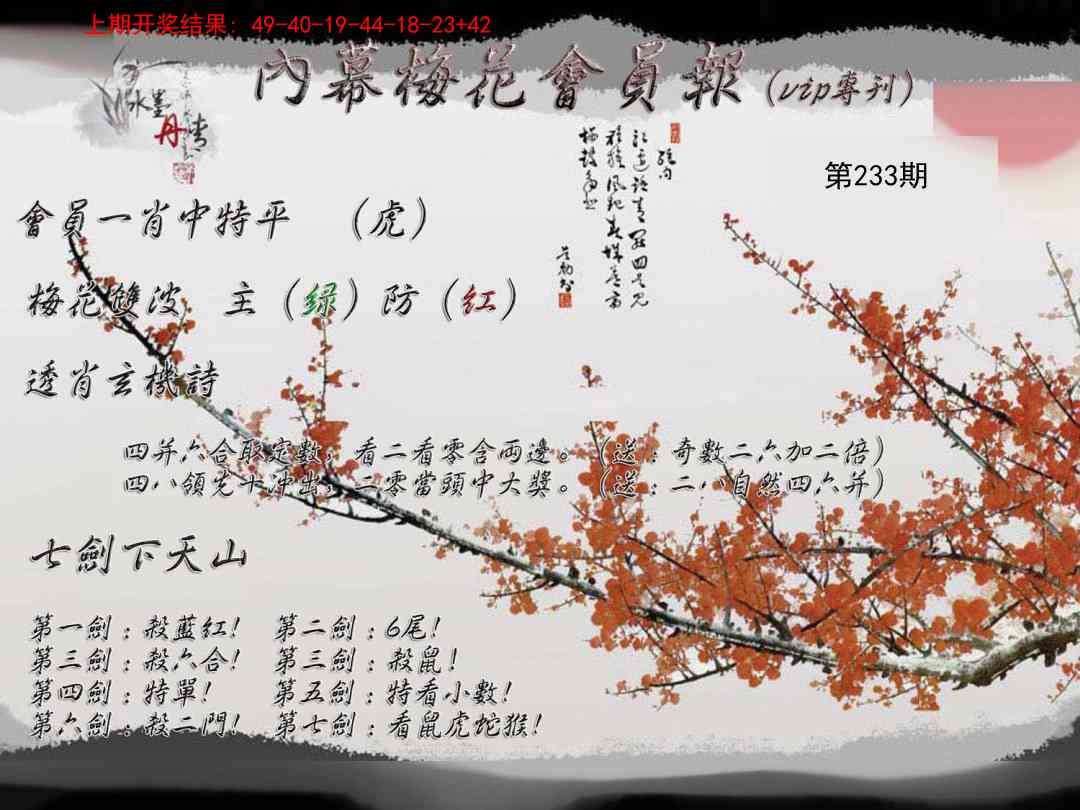 上期开奖结果: 49-40-19-44-18-23+42
內幕梅花會員報(vip專刊)
水墨
丹青
第233期
會員一肖中特平 (虎)
梅花雙波 主(绿)防(红)
透肖玄機詩
四并六合取定數,看二看零含兩邊。(送:奇數二六加二倍)
四八領先十沖出,二零當頭中大獎。(送:二八自然四六并)
七劍下天山
第一劍:殺藍红! 第二劍:6尾!
第三劍:殺六合! 第三劍:殺鼠!
第四劍:特單! 第五劍:特看小數!
第六劍:殺二門! 第七劍:看鼠虎蛇猴!